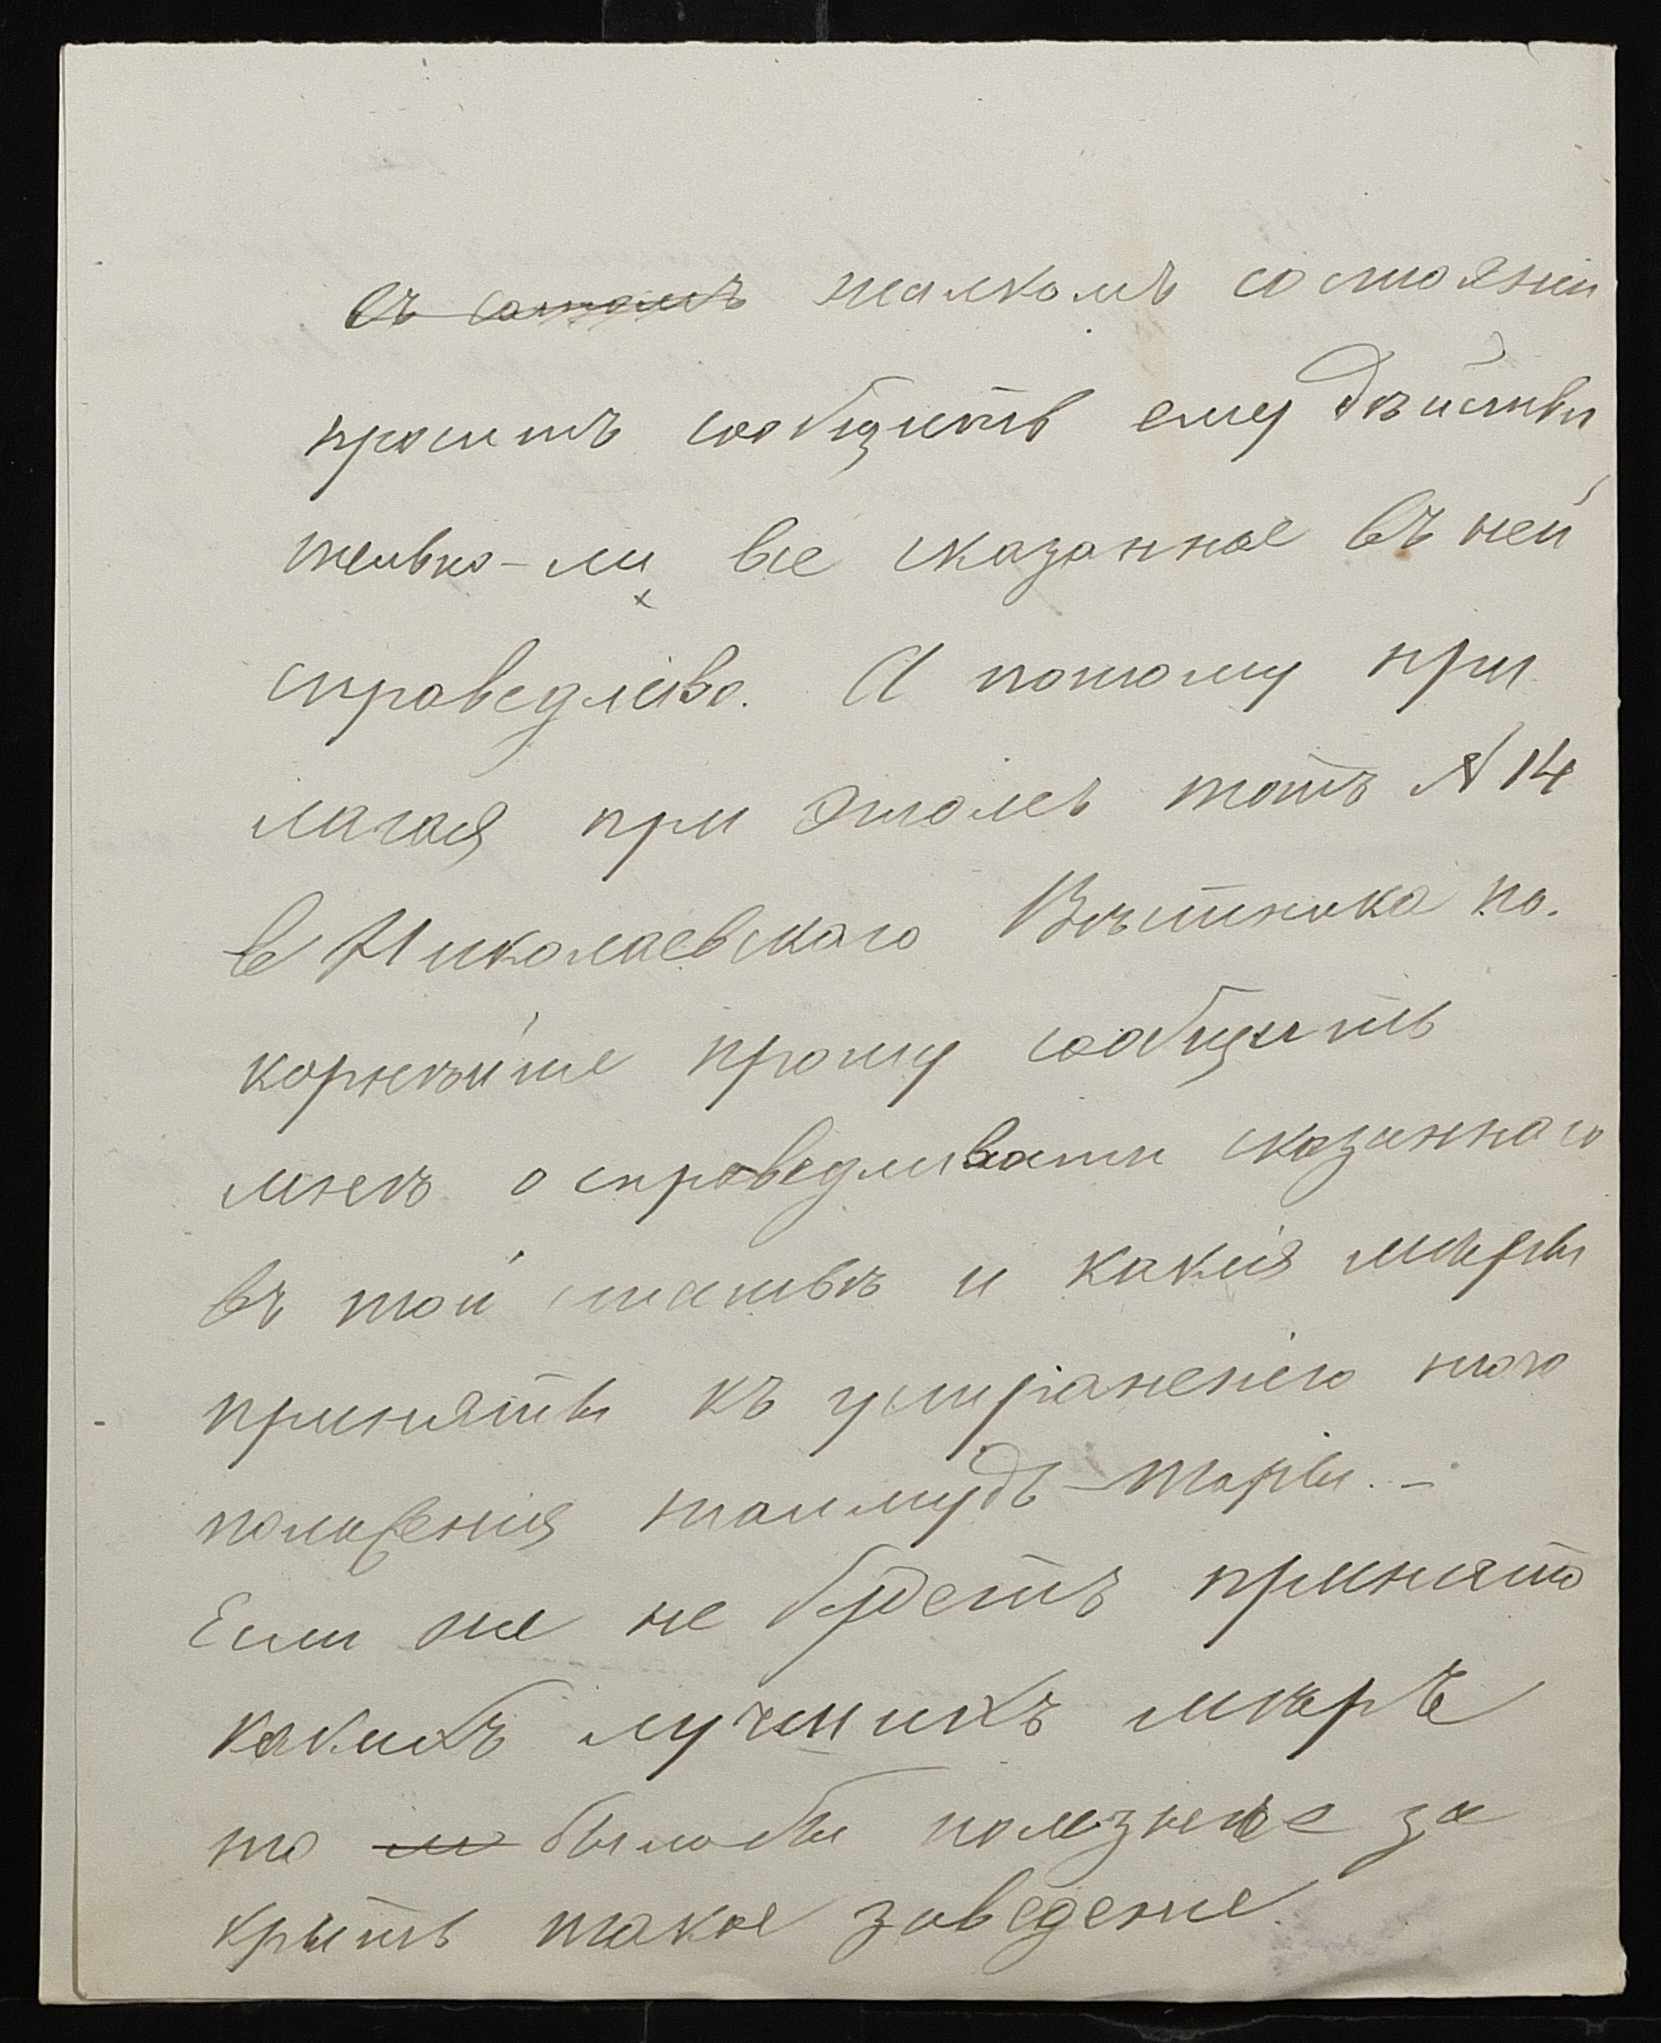 въ самомъ жалкомъ состояніи
проситъ сообщить ему дѣйстви
тельно-ли все сказанное въ ней
справедливо. А потому при
лагая при этомъ тотъ № 14
Николаевскаго Вѣстника по.
корнѣйше прошу сообщить
мнѣ о справедливости сказаннаго
въ той статьѣ и какія мѣры
приняты къ устраненію того
положенія талмудъ-торы. -
Если же не будетъ принято
какихъ лучшихъ мѣръ
то было бы полезнѣе за
крыть такое заведеніе